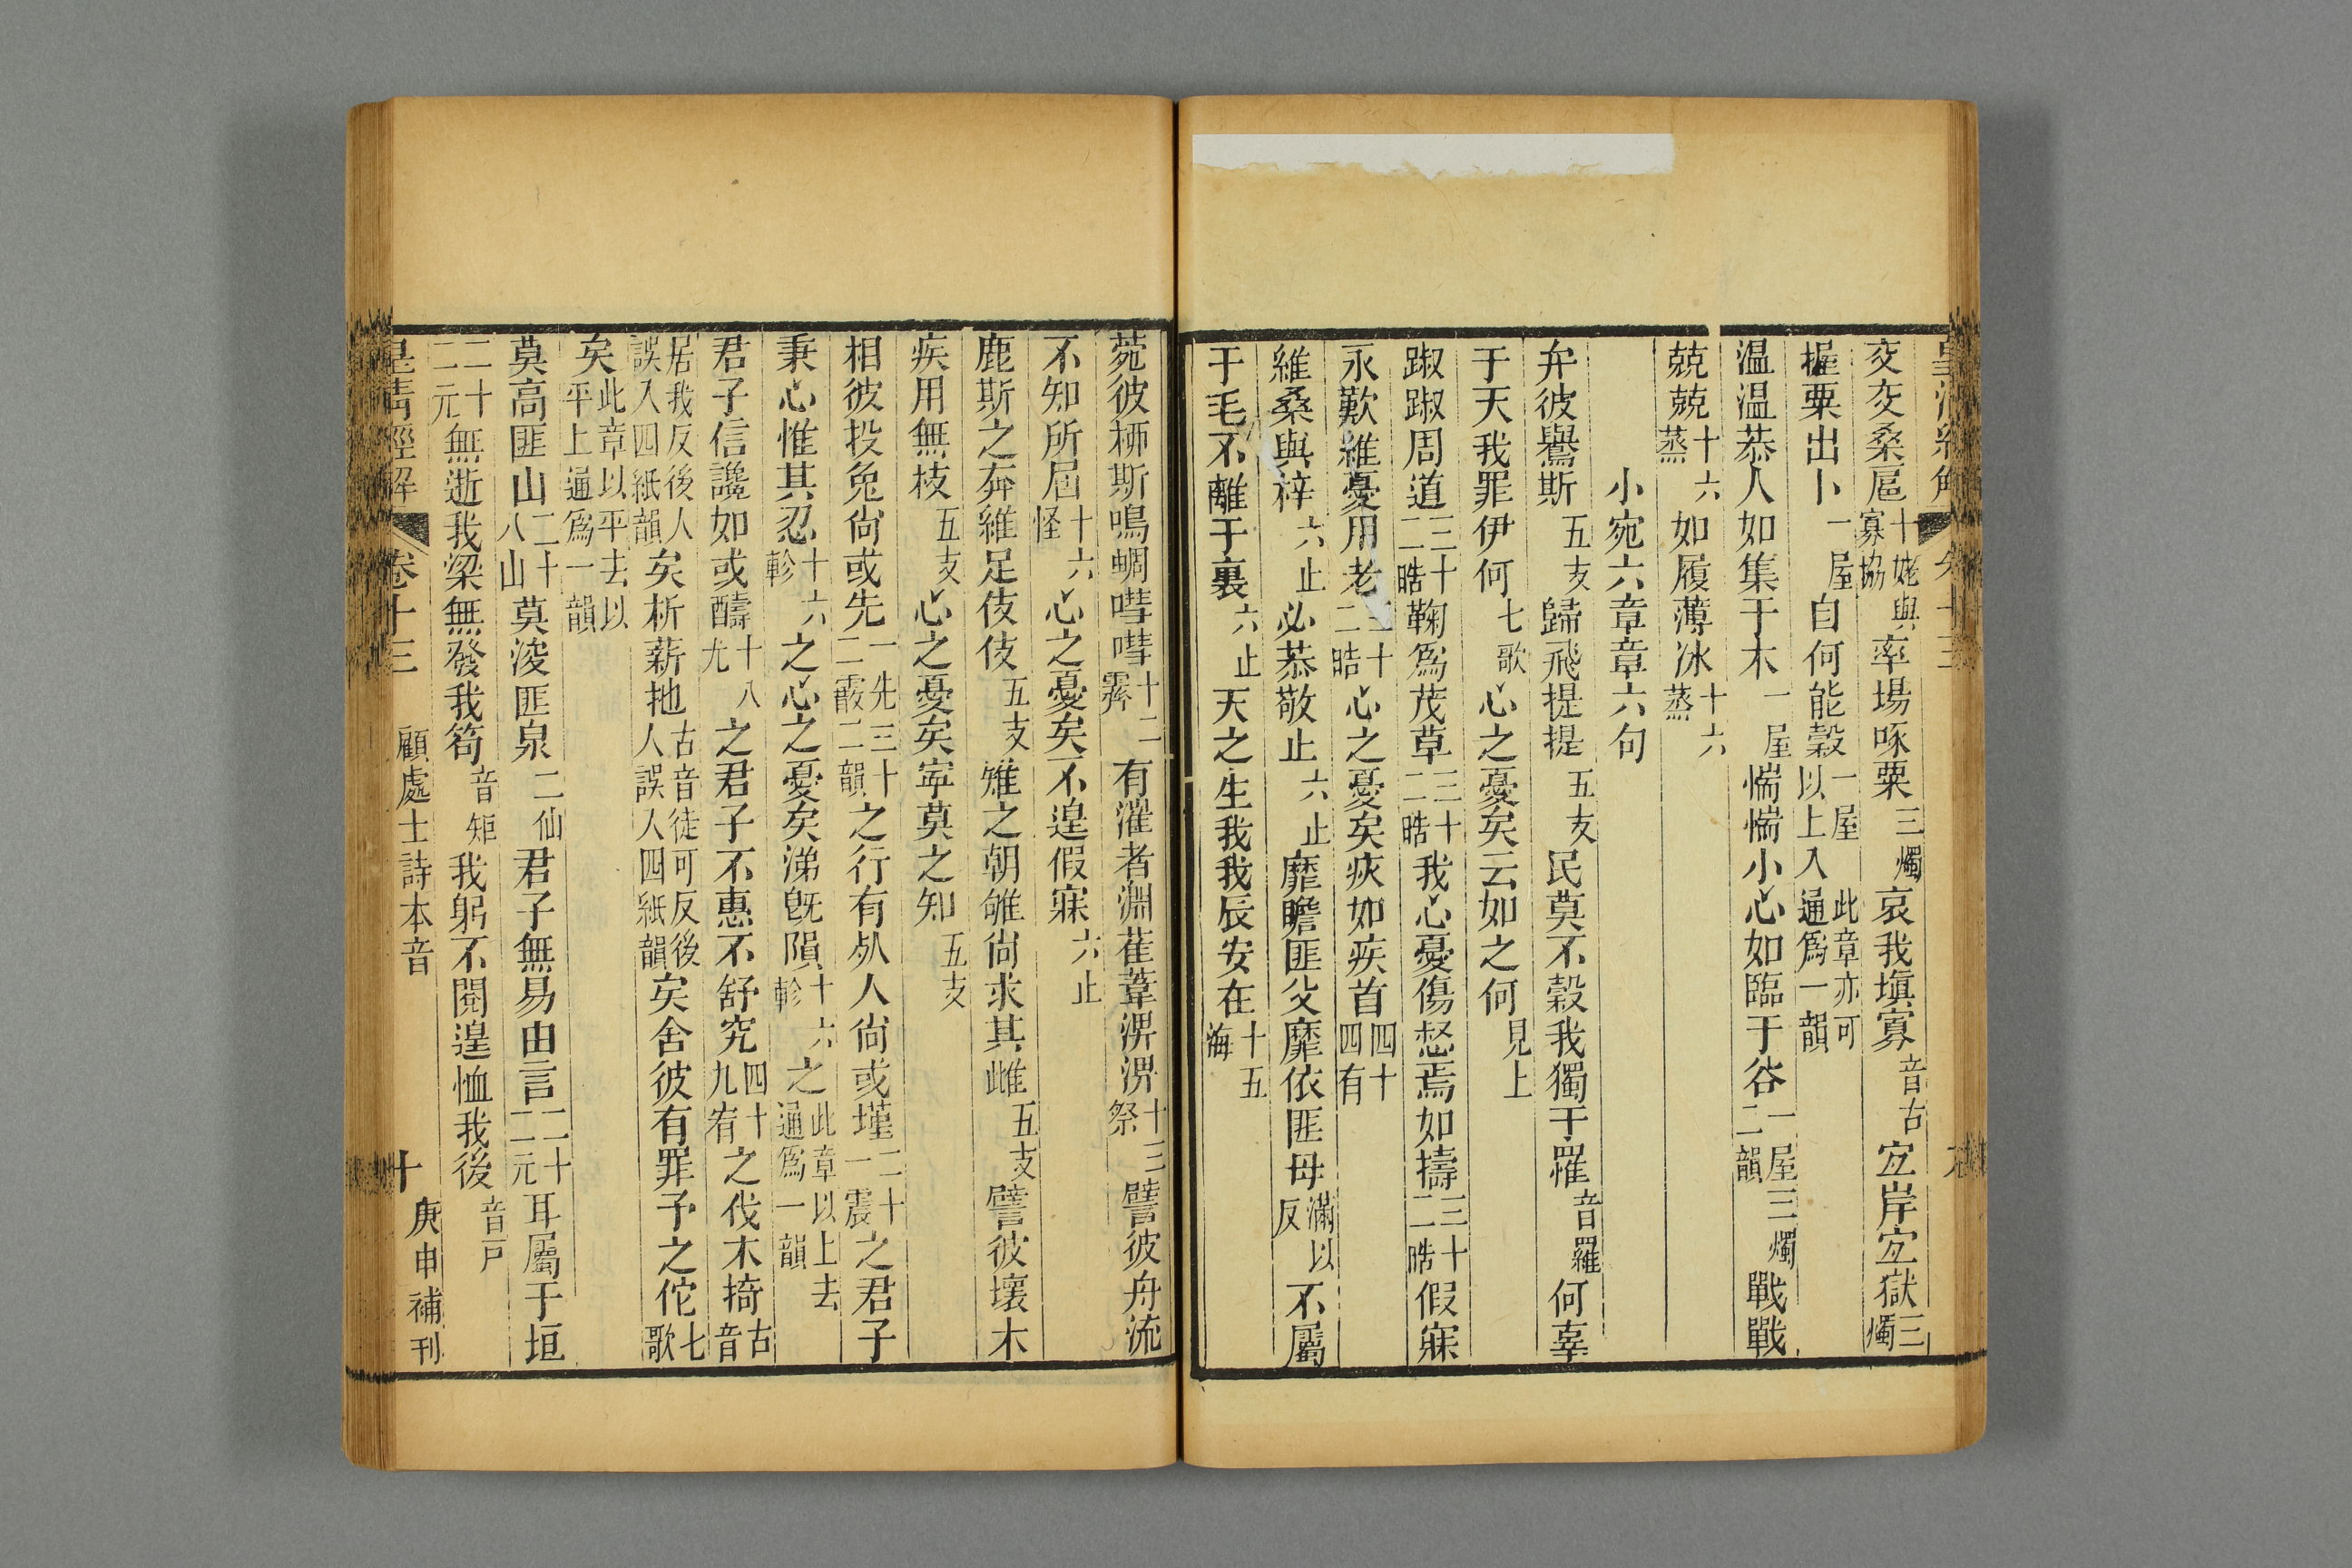 交交桑扈十姥與寡協率場啄粟三燭哀我塡寡音古宜岸宜獄三燭
握粟出卜一屋自何能穀一屋以上入此章亦可通爲一韻
温温恭人如集于木一屋惴惴小心如臨于谷一屋三燭二韻戰戰
兢兢十六蒸如履薄冰十六蒸
小宛六章章六句
弁彼鸒斯五支歸飛提提五支民莫不穀我獨于罹音羅何辜
于天我罪伊何七歌心之憂矣云如之何見上
踧踧周道三十二晧鞠爲茂草三十二晧我心憂傷惄焉如擣三十二晧假寐
永歎維憂用老三十二晧心之憂矣疢如疾首四十四有
維桑與梓六止必恭敬止六止靡瞻匪父靡依匪母滿以反不屬
于毛不離于裏六止天之生我我辰安在十五海
菀彼桺斯鳴蜩嘒嘒十二霽有漼者淵萑葦淠淠十三祭譬彼舟流
不知所屆十六怪心之憂矣不遑假寐六止
鹿斯之奔維足伎伎五支雉之朝雊尙求其雌五支譬彼壞木
疾用無枝五支心之憂矣寧莫之知五支
相彼投兔尙或先一先三十二霰二韻之行有死人尙或墐二十一震之君子
秉心惟其忍十六軫之心之憂矣涕旣隕十六軫之此章以上去通爲一韻
君子信讒如或醻十八尤之君子不惠不舒究四十九宥之伐木掎古音
居我反後人誤入四紙韻矣析薪扡古音徒可反後人誤入四紙韻矣舍彼有罪予之佗七歌
矣此章以平去以平上通爲一韻
莫高匪山二十八山莫浚匪泉二仙君子無易由言二十二元耳屬于垣
二十二元無逝我梁無發我笱音矩我躬不閱遑恤我後音戸
皇淸經解 卷十三 顧處士詩本音 十 庚申補刊